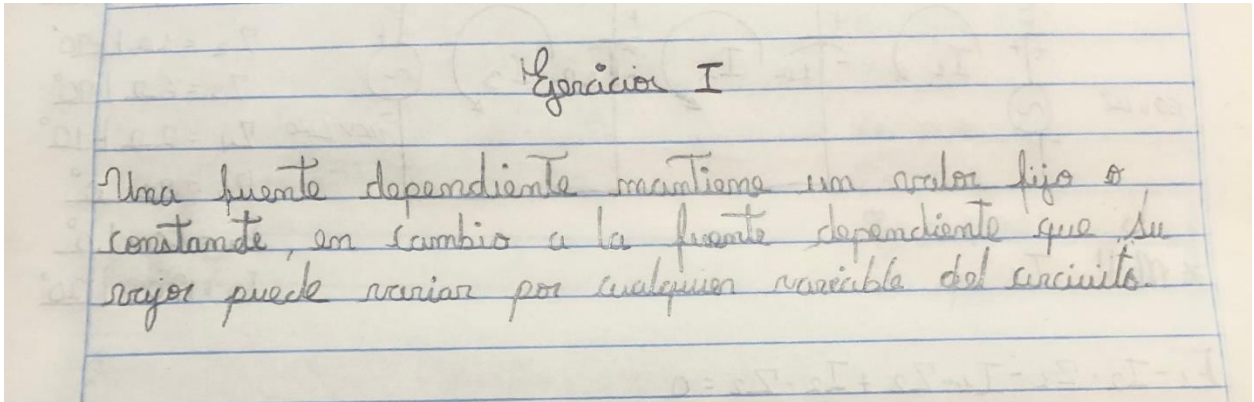 Ejercicio I
Una fuente dependiente mantiene un valor fijo o
constante, en cambio a la fuente dependiente que su
valor puede variar por cualquier variable del circuito.